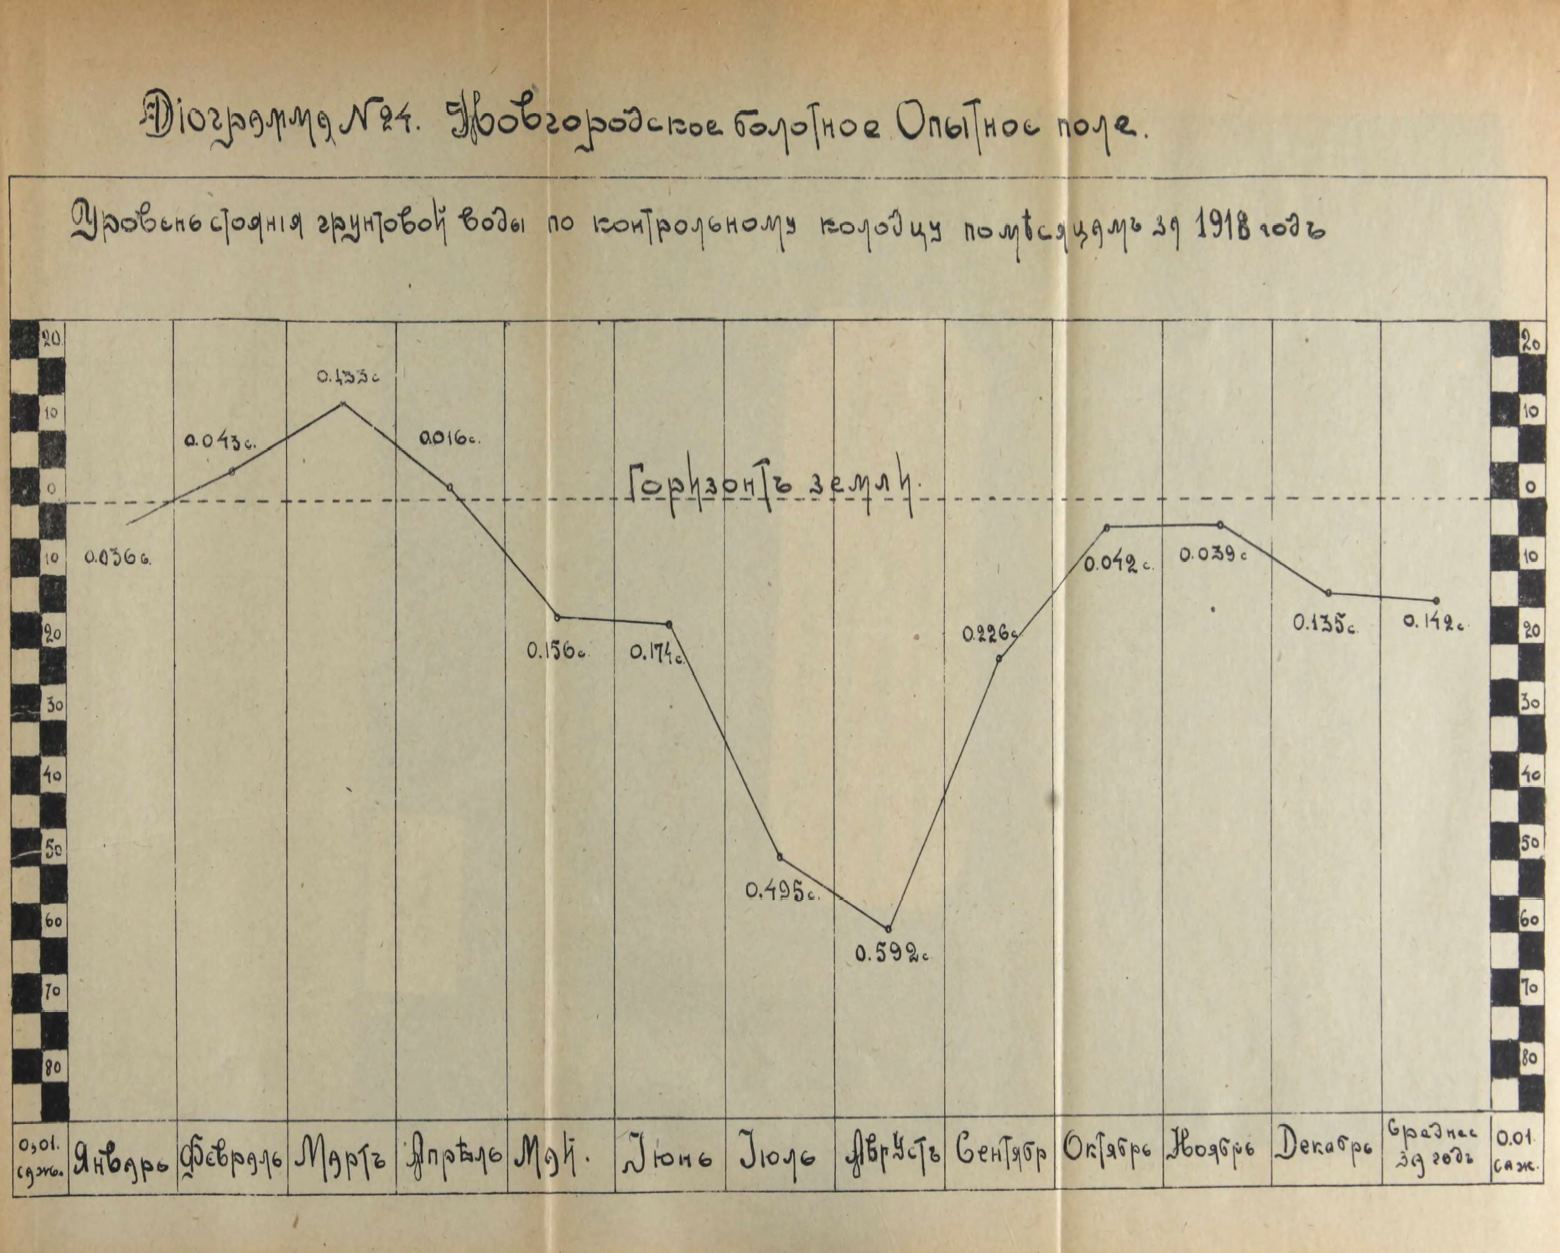 Діаграмма № 24. Новгородское болотное Опытное поле.
Уровень стоянія грунтовой воды по контрольному колодцу по мѣсяцамъ за 1918 годъ
20 20
0.133с
10 10
0.043с. 0.016с.
0 Горизонтъ земли. 0
10 0.036с. 0.042с. 0.039с 10
20 0.156с. 0.174с. 0.226с 0.135с. 0.142с. 20
30 30
40 40
50 50
0.495с.
60 60
0.592с
70 70
80 80
0,01. саж. Январь Февраль Мартъ Апрѣль Май. Іюнь Іюль Августъ Сентябр Октябрь Ноябрь Декабрь Среднее за годъ 0.01 саж.